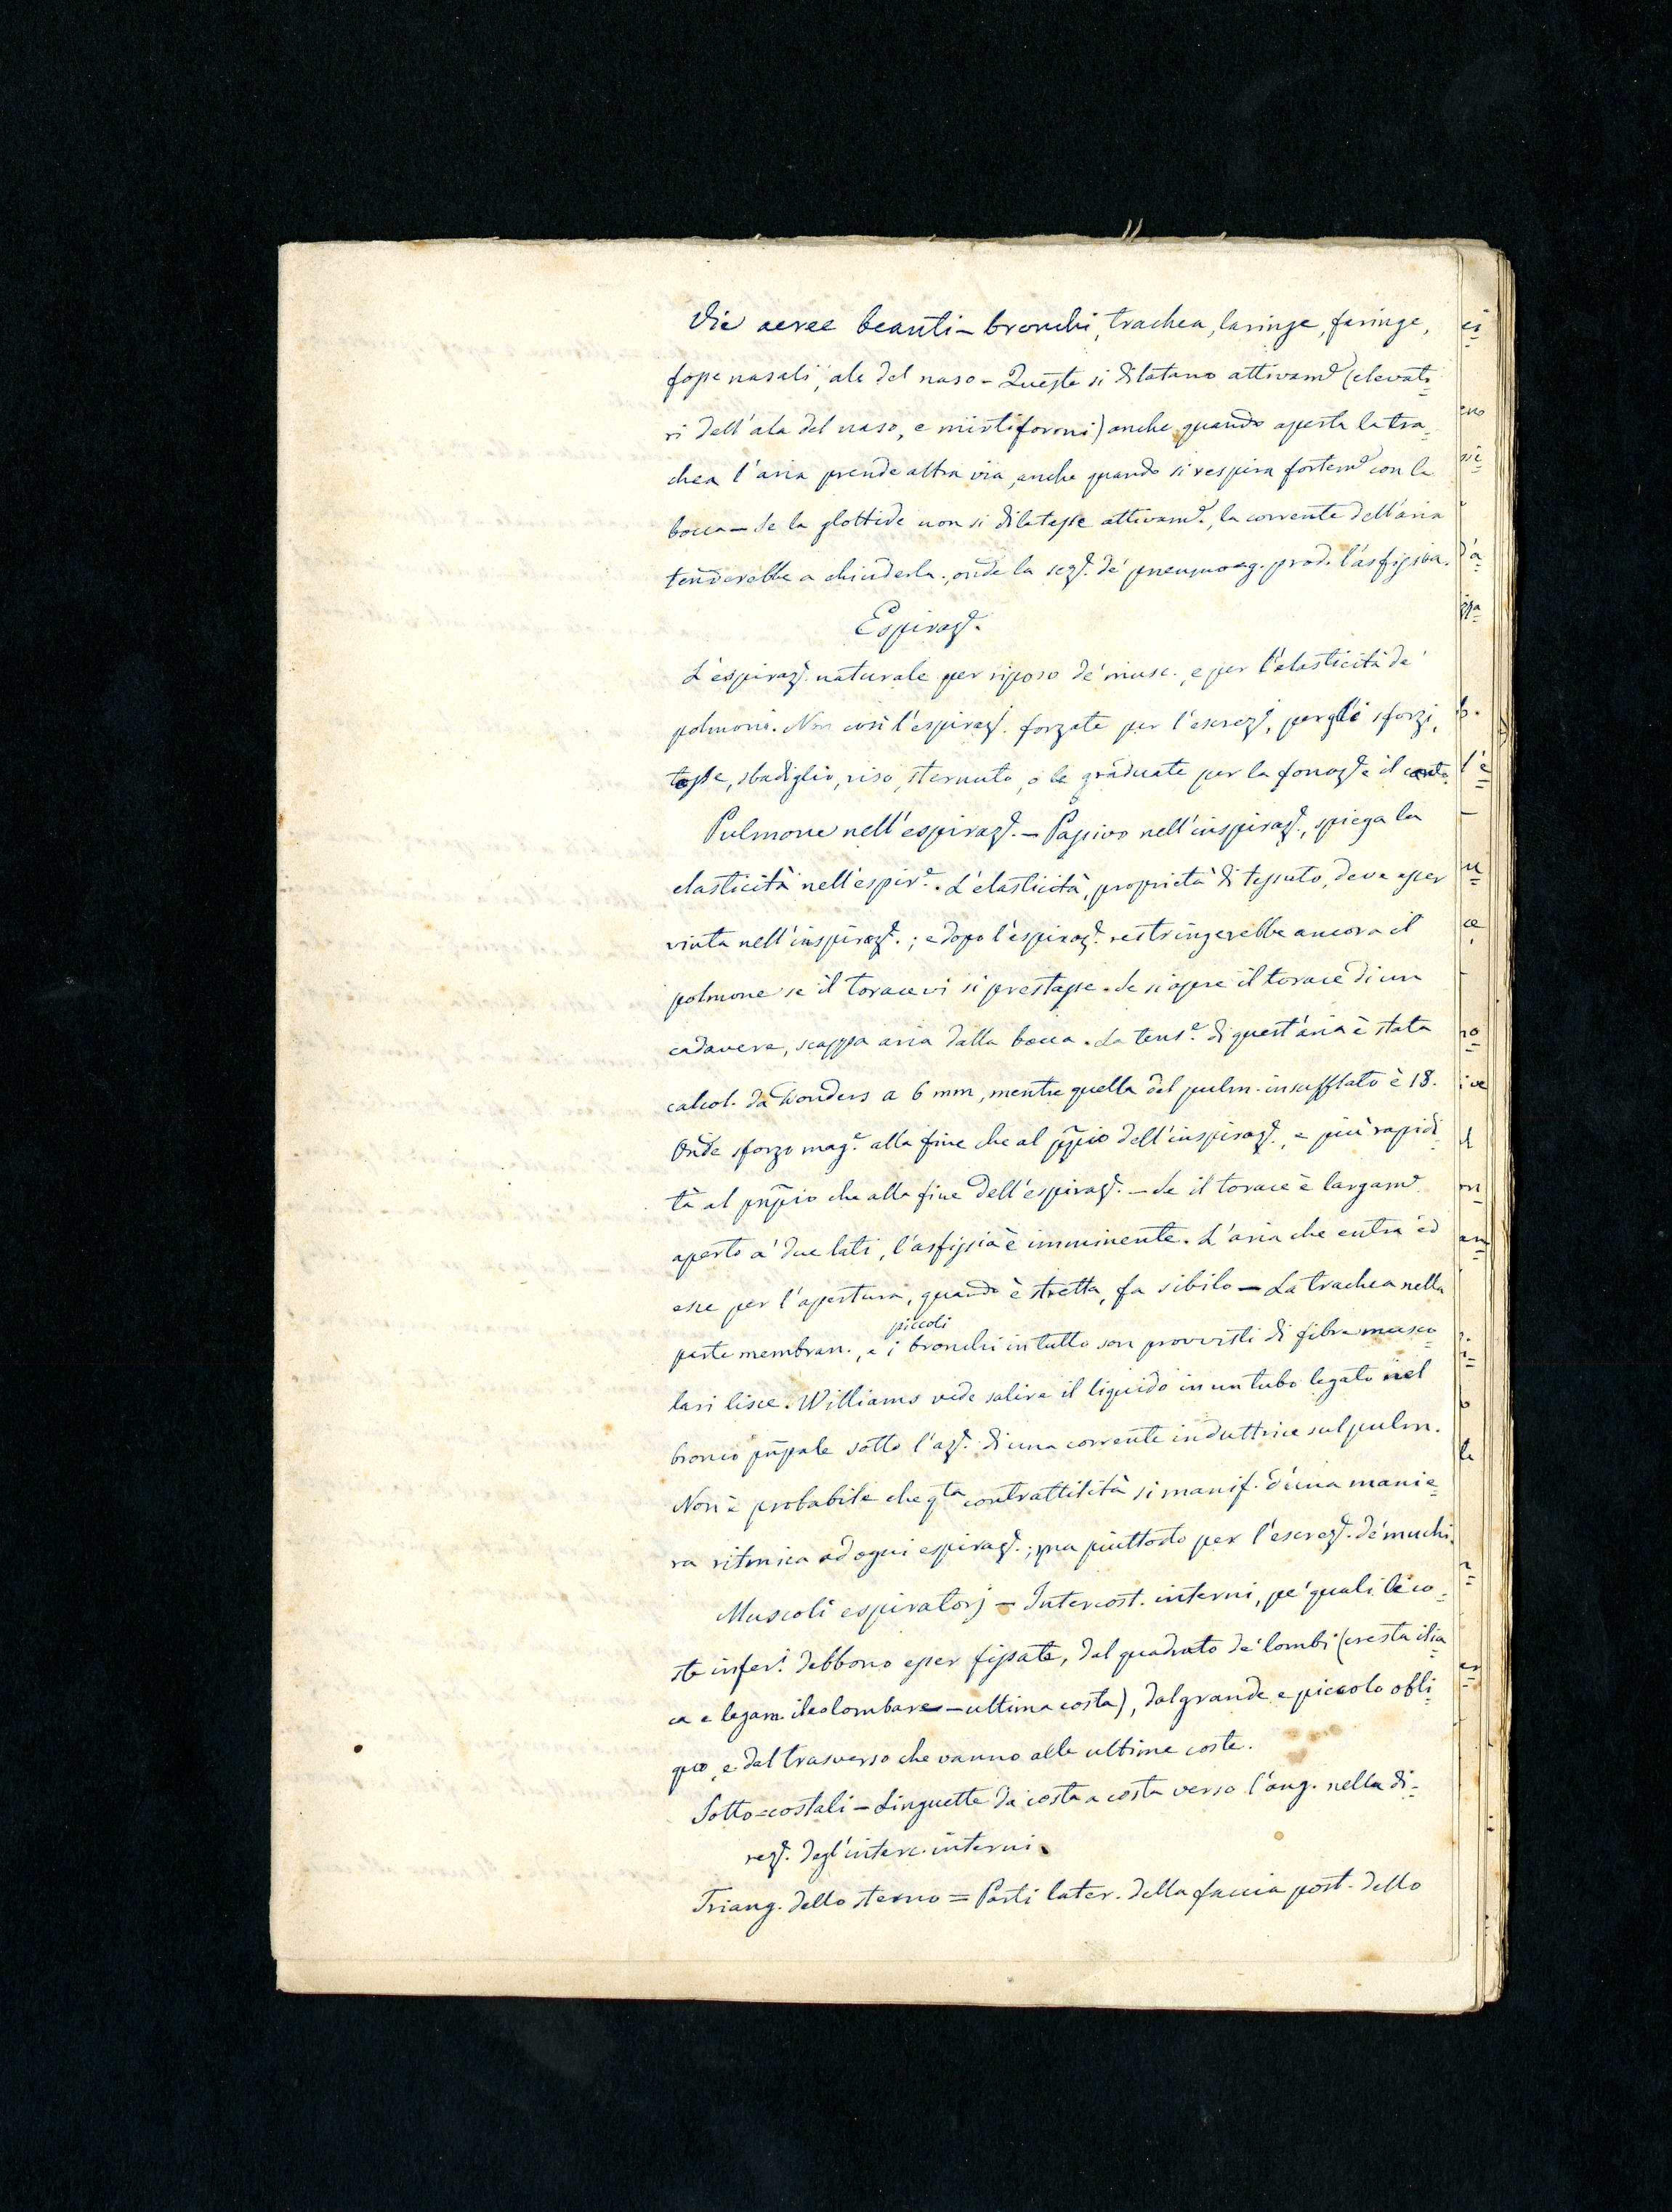 Vie aeree beanti – bronchi, trachea, laringe, faringe,
fosse nasali, ale del naso – Queste si dilatano attivam.e (elevato=
ri dell'ala del naso, e mirtiformi) anche quando aperta la tra=
chea l'aria prende altra via, anche quando si respira fortem.e con la
bocca – Se la glottide non si dilatasse attivam.e, la corrente dell'aria
tenderebbe a chiuderla, onde la sez.e de' pneumog. prod. l'asfissia.
Espiraz.e
L'espiraz.e naturale per riposo de' musc., e per l'elasticità de'
polmoni. Non così l'espiraz.e forzate per l'escrez.e, per gli sforzi,
tosse, sbadiglio, riso, sternuto, o le graduate per la fonaz.e e il canto.
Pulmone nell'espiraz.e – Passivo nell'inspiraz.e, spiega la
elasticità nell'espir.e. L'elasticità, proprietà di tessuto, deve esser
vinta nell'inspiraz.e; e dopo l'espiraz.e restringerebbe ancora il
polmone se il torace vi si prestasse. Se si apre il torace di un
cadavere, scappa aria dalla bocca. La tens.e di quest'aria è stata
calcol. da Donders a 6 mm, mentre quella del pulm. insufflato è 18.
Onde sforzo mag.e alla fine che al pñpio dell'inspiraz.e, e più rapidi=
tà al pñpio che alla fine dell'espiraz.e – Se il torace è largam.e
aperto a' due lati, l'asfissia è imminente. L'aria che entra ed
esce per l'apertura, quando è stretta, fa sibilo – La trachea nella
piccoli
parte membran., e i bronchi in tutto son provvisti di fibre musco=
lari lisce. Williams vede salire il liquido in un tubo legato nel
bronco pñpale sotto l'az.e di una corrente induttrice sul pulm.
Non è probabile che qta contrattilità si manif. d'una manie=
ra ritmica ad ogni espiraz.e; ma piuttosto per l'escrez.e de' muchi.
Muscoli espiratorj – Intercost. interni, pe' quali le co=
ste infer.i debbono esser fissate, dal quadrato de' lombi (cresta ilia=
ca e legam. ileolombare – ultima costa), dal grande e piccolo obli=
quo, e dal trasverso che vanno alle ultime coste.
Sotto-costali – Linguette da costa a costa verso l'ang. nella di=
rez.e degl'interc. interni.
Triang. dello sterno = Parti later. della faccia post. dello